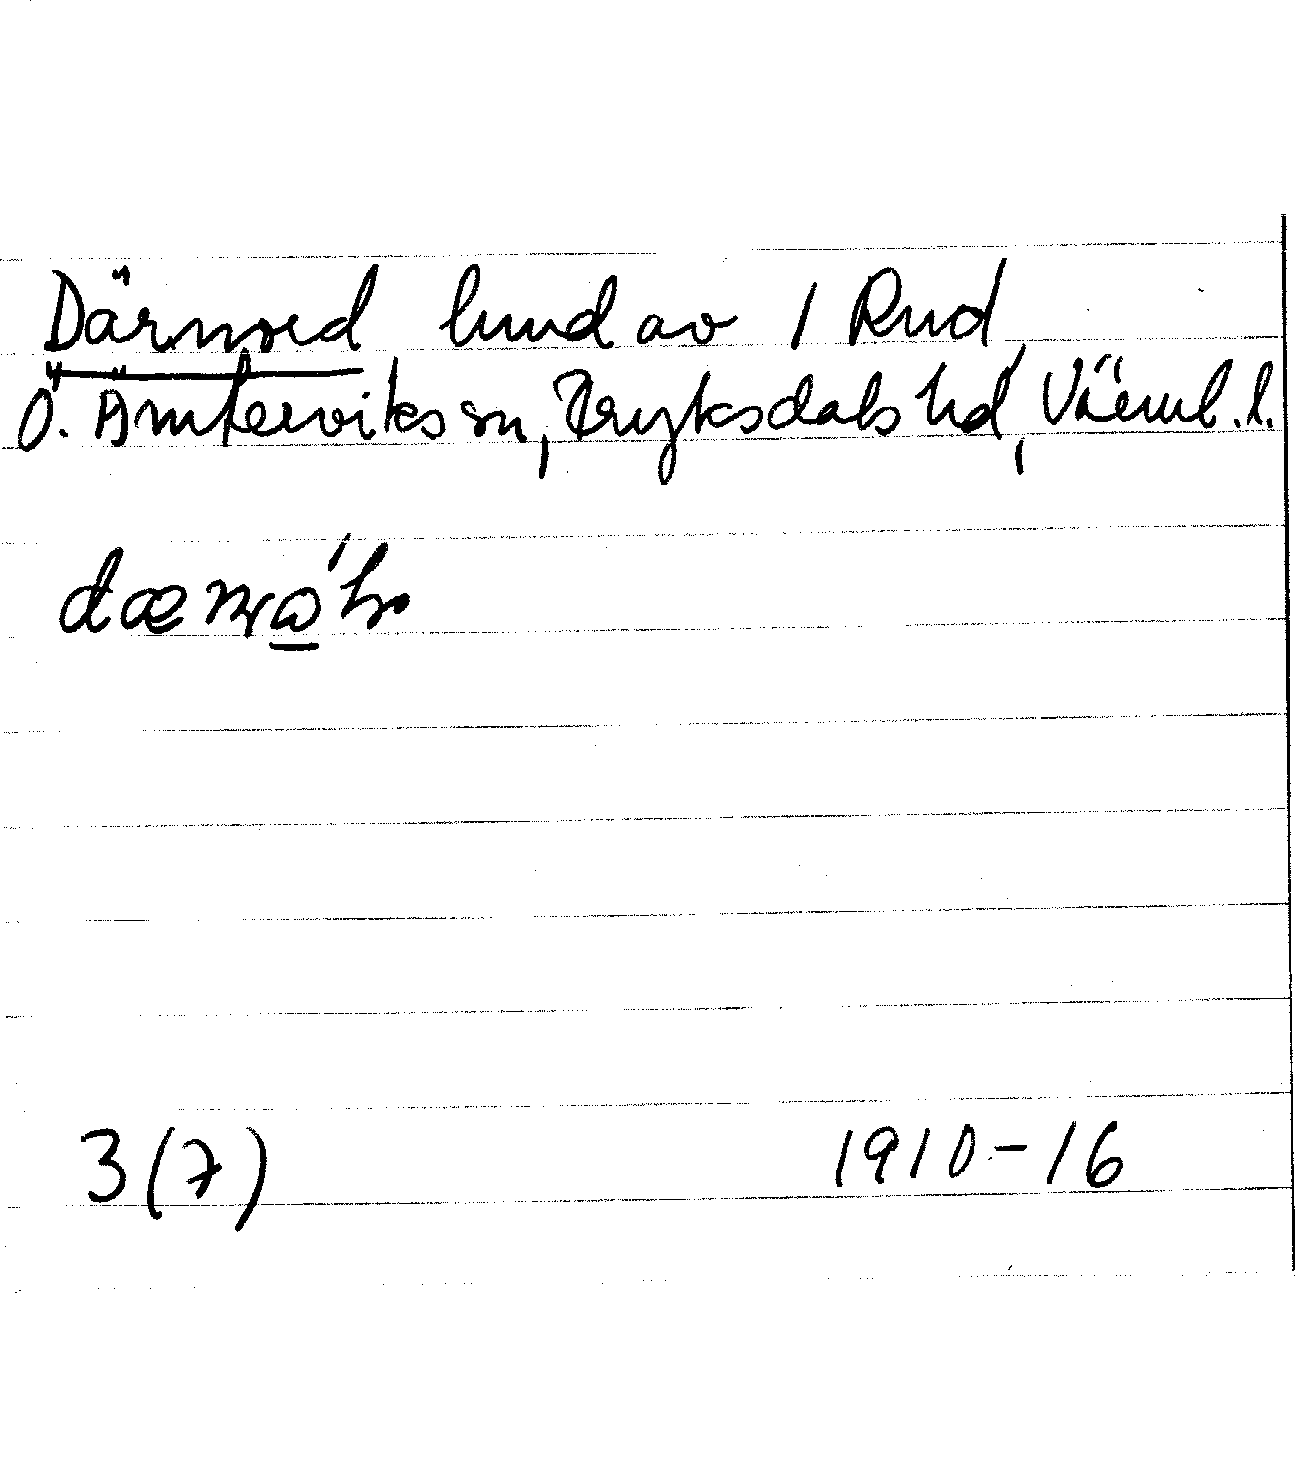 Därnoed lund av 1 Rud,
Ö. Ämterviks sn, Fryksdals hd, Värml. l.
3(7) 1910-16